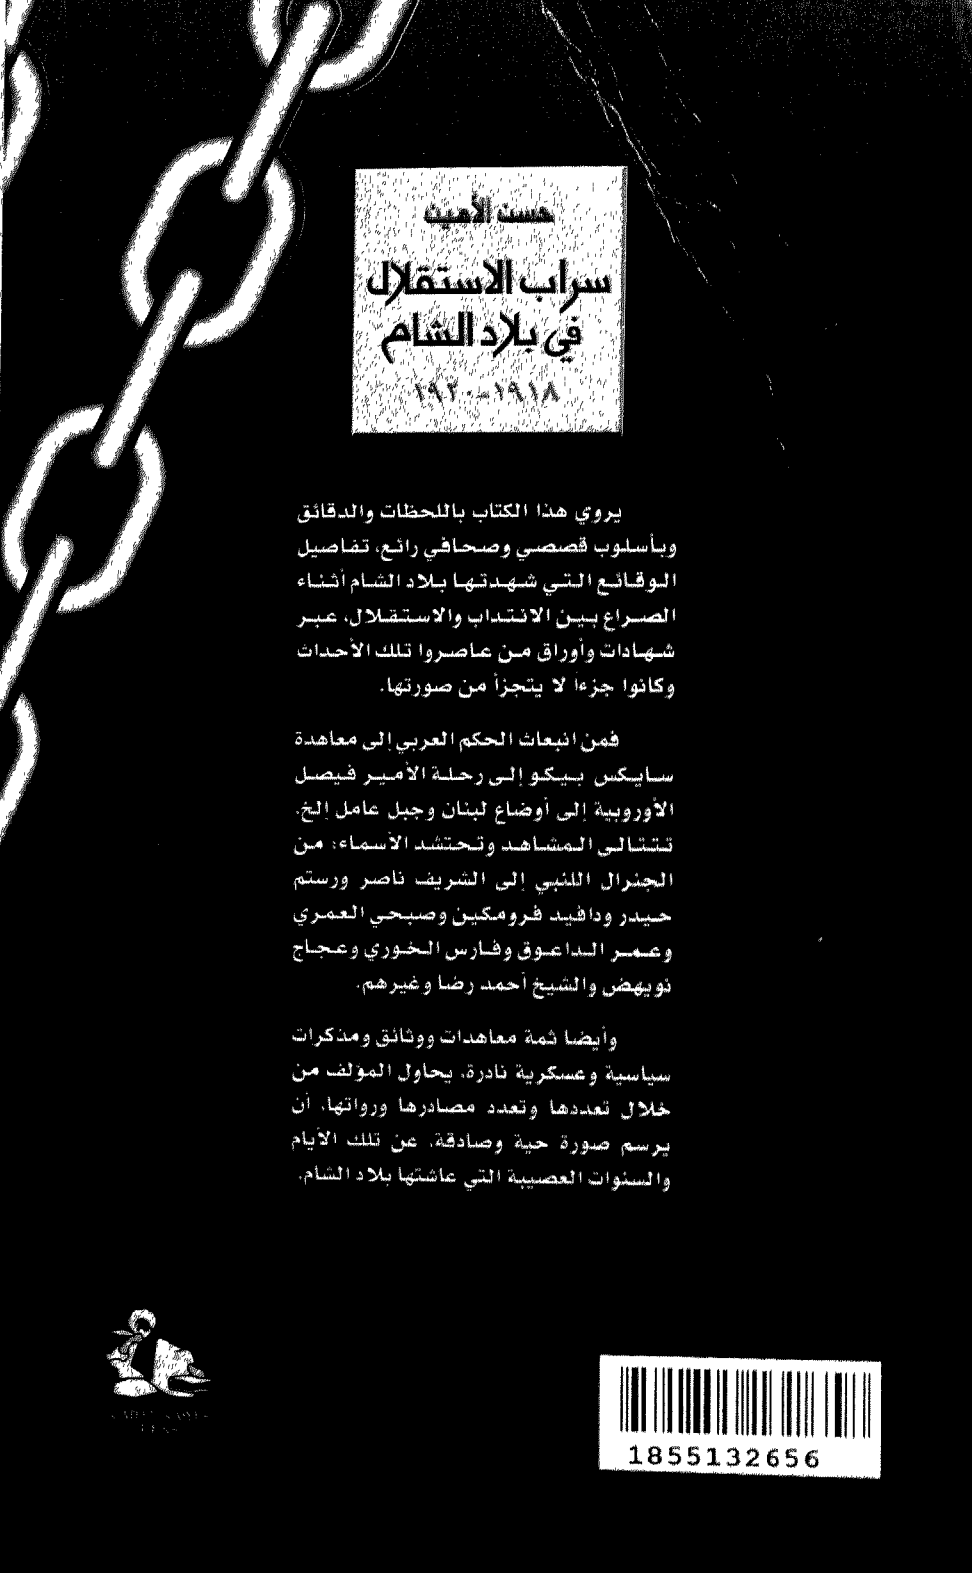 حسن الأمين
سراب الاستقلال
في بلاد الشام
١٩١٨-١٩٢٠
يروي هذا الكتاب باللحظات والدقائق
وبأسلوب قصصي وصحافي رائع، تفاصيل
الوقائع التي شهدتها بلاد الشام أثناء
الصراع بين الانتداب والاستقلال، عبر
شهادات وأوراق من عاصروا تلك الأحداث
وكانوا جزءاً لا يتجزأ من صورتها.
فمن انبعاث الحكم العربي إلى معاهدة
سايكس بيكو إلى رحلة الأمير فيصل
الأوروبية إلى أوضاع لبنان وجبل عامل إلخ.
تتتالى المشاهد وتحتشد الأسماء: من
الجنرال اللنبي إلى الشريف ناصر ورستم
حيدر ودافيد فرومكين وصبحي العمري
وعمر الداعوق وفارس الخوري وعجاج
نويهض والشيخ أحمد رضا وغيرهم.
وأيضا ثمة معاهدات ووثائق ومذكرات
سياسية وعسكرية نادرة، يحاول المؤلف من
خلال تعددها وتعدد مصادرها ورواتها، أن
يرسم صورة حية وصادقة، عن تلك الأيام
والسنوات العصيبة التي عاشتها بلاد الشام.
1855132656